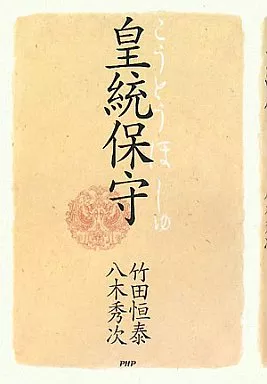 こうとうほしゅ
皇統保守
竹田恒泰
八木秀次
PHP